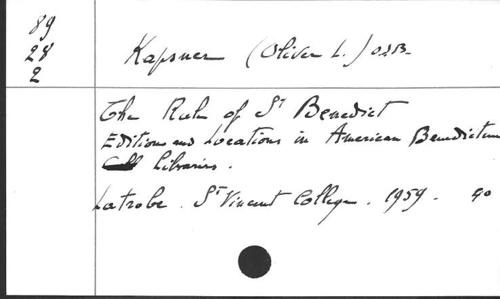 89
28
2
Kapsner (Oliver L.) O.S.B.
The Rule of St Benedict
Editions and Locations in American Benedictine
Libraries.
Latrobe. St Vincent College. 1959. 40